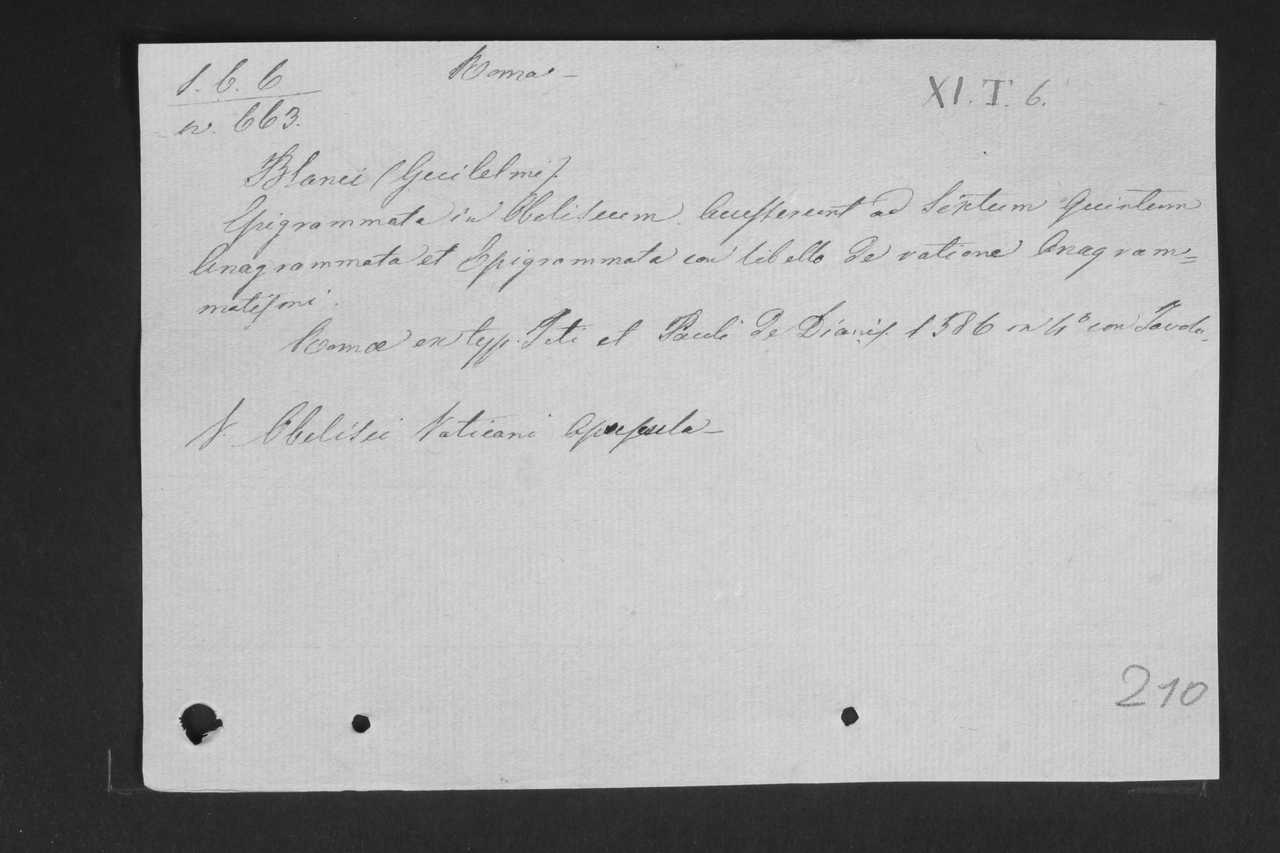 1. 6. 6
n. 663.
Roma –
XI. T. 6.
Blanci (Guilelmi)
Epigrammata in Obeliscum. ad Sixtum Quintum
Anagrammata et Epigrammata con libello de ratione Anagram=
matismi.
Romæ ex typ. Titi et Pauli de Dianis. 1586 in 4º con Tavola.
V. Obelisci Vaticani
210